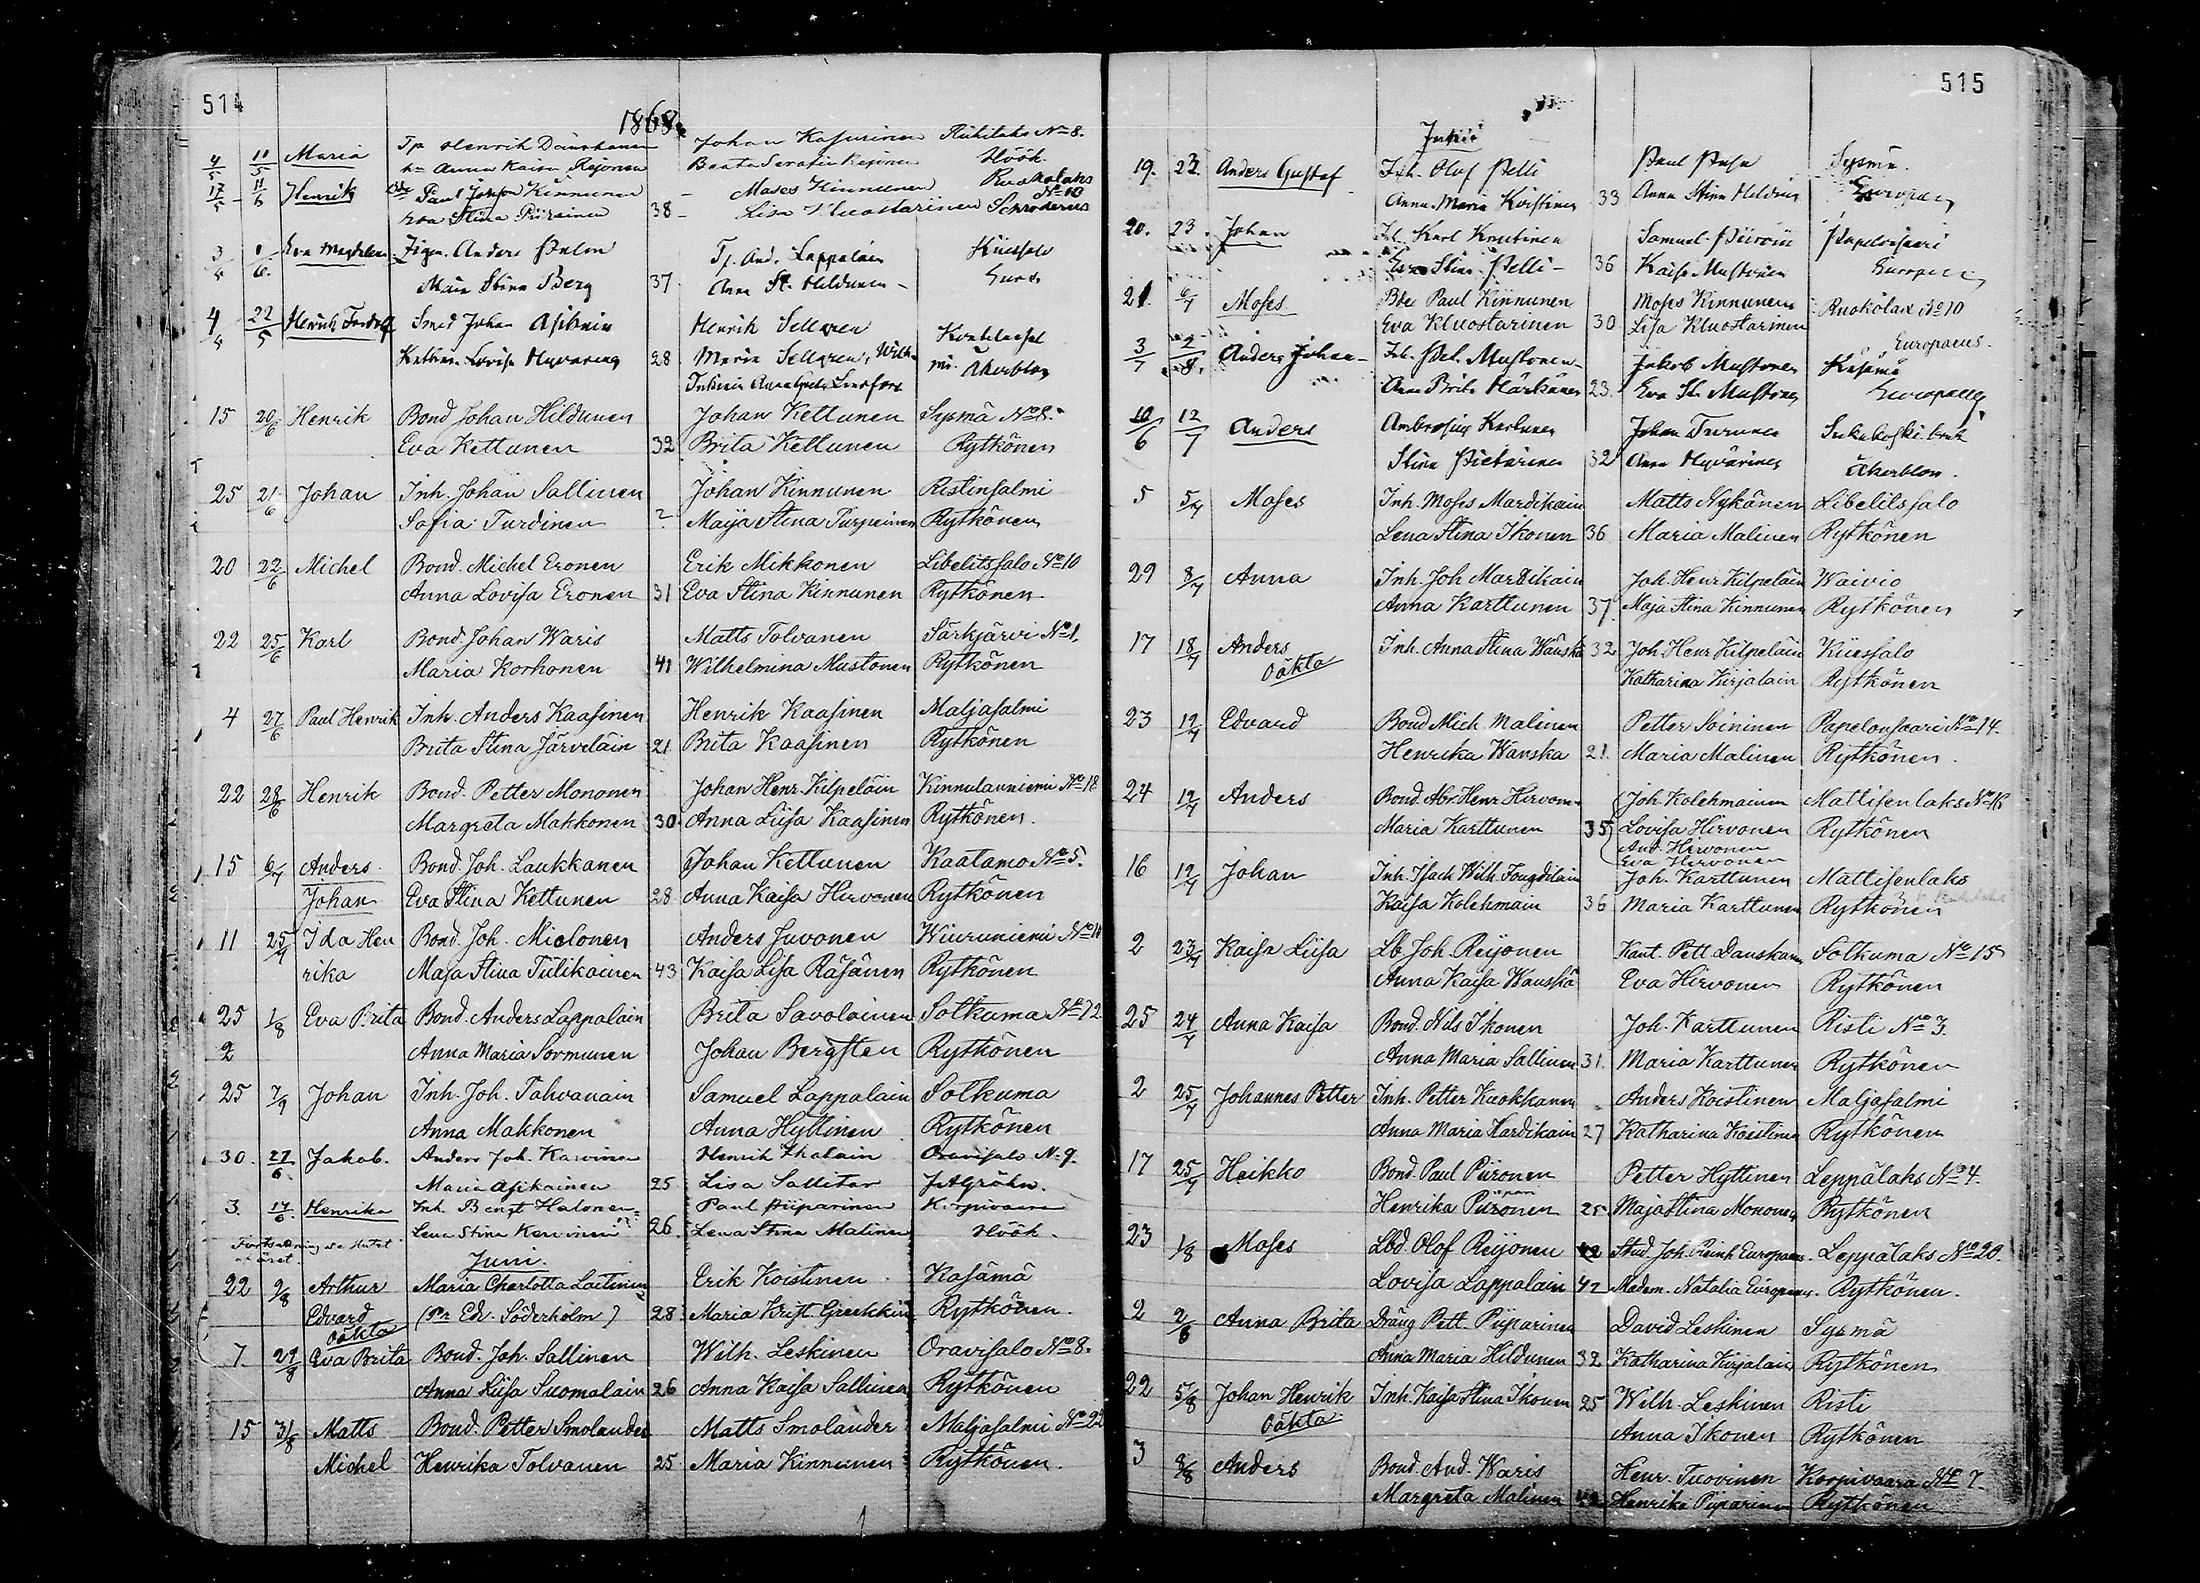 514
1868.
4/5 11/5 Maria Tp Henrik Danskanen Johan Kasurinen Riihilaks No 8.
hu Anna Kaisa Reijonen Beata Serafia Reijonen Höök.
17/5 11/6 Henrik Paul Johan Kinnunen Moses Kinnunen Ruokolaks No 10
Eva Stina Piirainen 38 Lisa Kluostarinen Schroderus
Eva Magdalena Zigen. Anders Palm Tp. And. Lappalain Kuessalo
Maria Stina Berg 37. Anna St. Hildunen
4 22/5 Henrik Smed Johan Asikain Henrik Sellgren Kontilaksi
Lovisa Hyvärinen 28. Maria Sellgren, Åkerblom
15 20/6 Henrik Bond Johan Hildunen Johan Kettunen Sysmä No 8.
Eva Kettunen 32 Brita Kettunen Rytkönen
25 21/6 Johan Inh. Johan Sallinen Johan Kinnunen Ristinsalmi
Sofia Turdinen ? Maija Stina Turpeinen Rytkönen
20 22/6 Michel Bond. Michel Eronen Erik Mikkonen Libelitssalo No 10
Anna Lovisa Eronen 31 Eva Stina Kinnunen Rytkönen
22 25/6 Karl Bond. Johan Waris Matts Tolvanen Särkjärvi No 1.
Maria Korhonen 41 Wilhelmina Mustonen Rytkönen
4 27/6 Paul Henrik Inh. Anders Kaasinen Henrik Kaasinen Maljasalmi
Brita Stina Järveläin 21 Brita Kaasinen Rytkönen
22 28/6 Henrik Bond. Petter Mononen Johan Henr. Kilpeläin Kinnulanniemi No 18
Margreta Makkonen 30. Anna Liisa Kaasinen Rytkönen.
15 6/7 Anders Bond. Joh. Laukkanen Johan Kettunen Kaatamo No 5.
Johan Eva Stina Kettunen 28 Anna Kaisa Hirvonen Rytkönen
11 25/7 Ida Hen Bond. Joh. Mielonen Anders Juvonen Wiuruniemi No 11
rika Maja Stina Tiilikainen 43 Kaisa Lisa Räsänen Rytkönen
25 1/8 Eva Brita Bond. Anders Lappalain Brita Savolainen Sotkuma No 12
2 Anna Maria Sormunen Johan Bergsten Rytkönen
25 7/9 Johan Inh. Joh. Tahvanain Samuel Lappalain Sotkuma
Anna Makkonen Anna Hyttinen Rytkönen
30. 27/6. Jakob. Anders Joh. Karvinen Henrik Ihalain Oravisalo No 9.
Maria Asikainen 25 Lisa Sallitar J.A. Gröhn.
3. 17/6. Henrika Inh. Bengt Halonen Paul Piiparinen Korpivaara
Lena Stina Karvinen 26. Lena Stina Malinen Höök.
Juni.
22 9/8 Arthur Maria Charlotta Laitinen Erik Koistinen Kasämä
Edvard (Fr Edv. Söderholm) 28 Maria Krist. Greekkin Rytkönen.
Oäkta
7. 29/8 Eva Brita Bond. Joh. Sallinen Wilh. Leskinen Oravisalo No 8.
Anna Liisa Suomalain 26 Anna Kaisa Sallinen Rytkönen
15 31/8 Matts Bond. Petter Smolander Matts Smolander Maljasalmi No 22
Michel Henrika Tolvanen 25 Maria Kinnunen Rytkönen.
515
19. 22. Anders Gustaf Inh. Olof Pelli Paul Sysmä.
Anna Maria Koistinen 33 Anna Stina Hildunen Europaeus
20. 23 Johan Karl Knutinen Samuel Piiroin Papelonsaari
Eva Stina Pelli 36 Kaisa Mustonen Europaeus
21. 6/7 Moses Bde Paul Kinnunen Moses Kinnunen Ruokolax No 10
Eva Kluostarinen 30 Lisa Kluostarinen Europaeus.
3/7 2/8. Anders Johan Inh. Pet. Mustonen Jakob Mustonen Kasämä
Anna Brita Härkänen 23. Eva St. Mustonen Europaeus
10/6 12/7 Anders Ambrosius Karhunen Johan Turunen
Stina Pietarinen 32 Anna Hyvärinen Åkerblom.
5 5/7 Moses Inh. Moses Mardikain Matts Nykänen Libelitssalo
Lena Stina Ikonen 36 Maria Malinen Rytkönen
29 8/7 Anna Inh. Joh Mardikain Joh. Henr Kilpeläin Waivio
Anna Karttunen 37. Maja Stina Kinnunen Rytkönen
17 18/7 Anders Inh. Anna Stina Wänskä 32 Joh Henr Kilpeläin Kuessalo
Oäkta Katharina Kirjalain Rytkönen
23 19/7 Edvard Bond Mich. Malinen Petter Soininen Papelonsaari No 14.
Henrika Wanska 21. Maria Malinen Rytkönen.
24 19/7 Anders Bond. Abr. Henr Hirvonen Joh. Kolehmainen Mattisenlaks No 16
Maria Karttunen 35 Lovisa Hirvonen Rytkönen
And. Hirvonen
Eva Hirvonen
16 19/7 Johan Inh. Isach Wilh. Fougdilain Joh. Karttunen Mattisenlaks
Kaisa Kolehmain 36 Maria Karttunen Rytkönen
2 23/7 Kaisa Liisa Lb. Joh. Reijonen Kant. Pett Danskanen Sotkuma No 15
Anna Kaisa Wanskä Eva Hirvonen Rytkönen
25 24/7 Anna Kaisa Bond. Nils Ikonen Joh. Karttunen Risti No 3.
Anna Maria Sallinen 31. Maria Karttunen Rytkönen
2 25/7 Johannes Petter Inh. Petter Kuokkanen Anders Koistinen Maljasalmi
Anna Maria Hardikain 27 Katharina Koistinen Rytkönen
17 25/7 Heikko Bond. Paul Piironen Petter Hyttinen Leppälaks No 4.
Henrika Piironen 25 Maja Stina Mononen Rytkönen
23 1/8 Moses Lbd Olof Reijonen 42 Stud. Joh. Reinh Europaeus. Leppälaks No 20.
Lovisa Lappalain 42 Madem. Natalia Europaeus. Rytkönen.
2 2/8 Anna Brita Dräng Pett. Piiparinen David Leskinen Sysmä
Anna Maria Hildunen 32 Katharina Kirjalain Rytkönen
22 5/8 Johan Henrik Inh. Kaisa Stina Ikonen 25 Wilh. Leskinen Risti
Oäkta Anna Ikonen Rytkönen
3 8/8 Anders Bond. And. Waris Henr. Tuovinen Korpivaara No 7.
Margreta Malinen Henrika Piiparinen Rytkönen